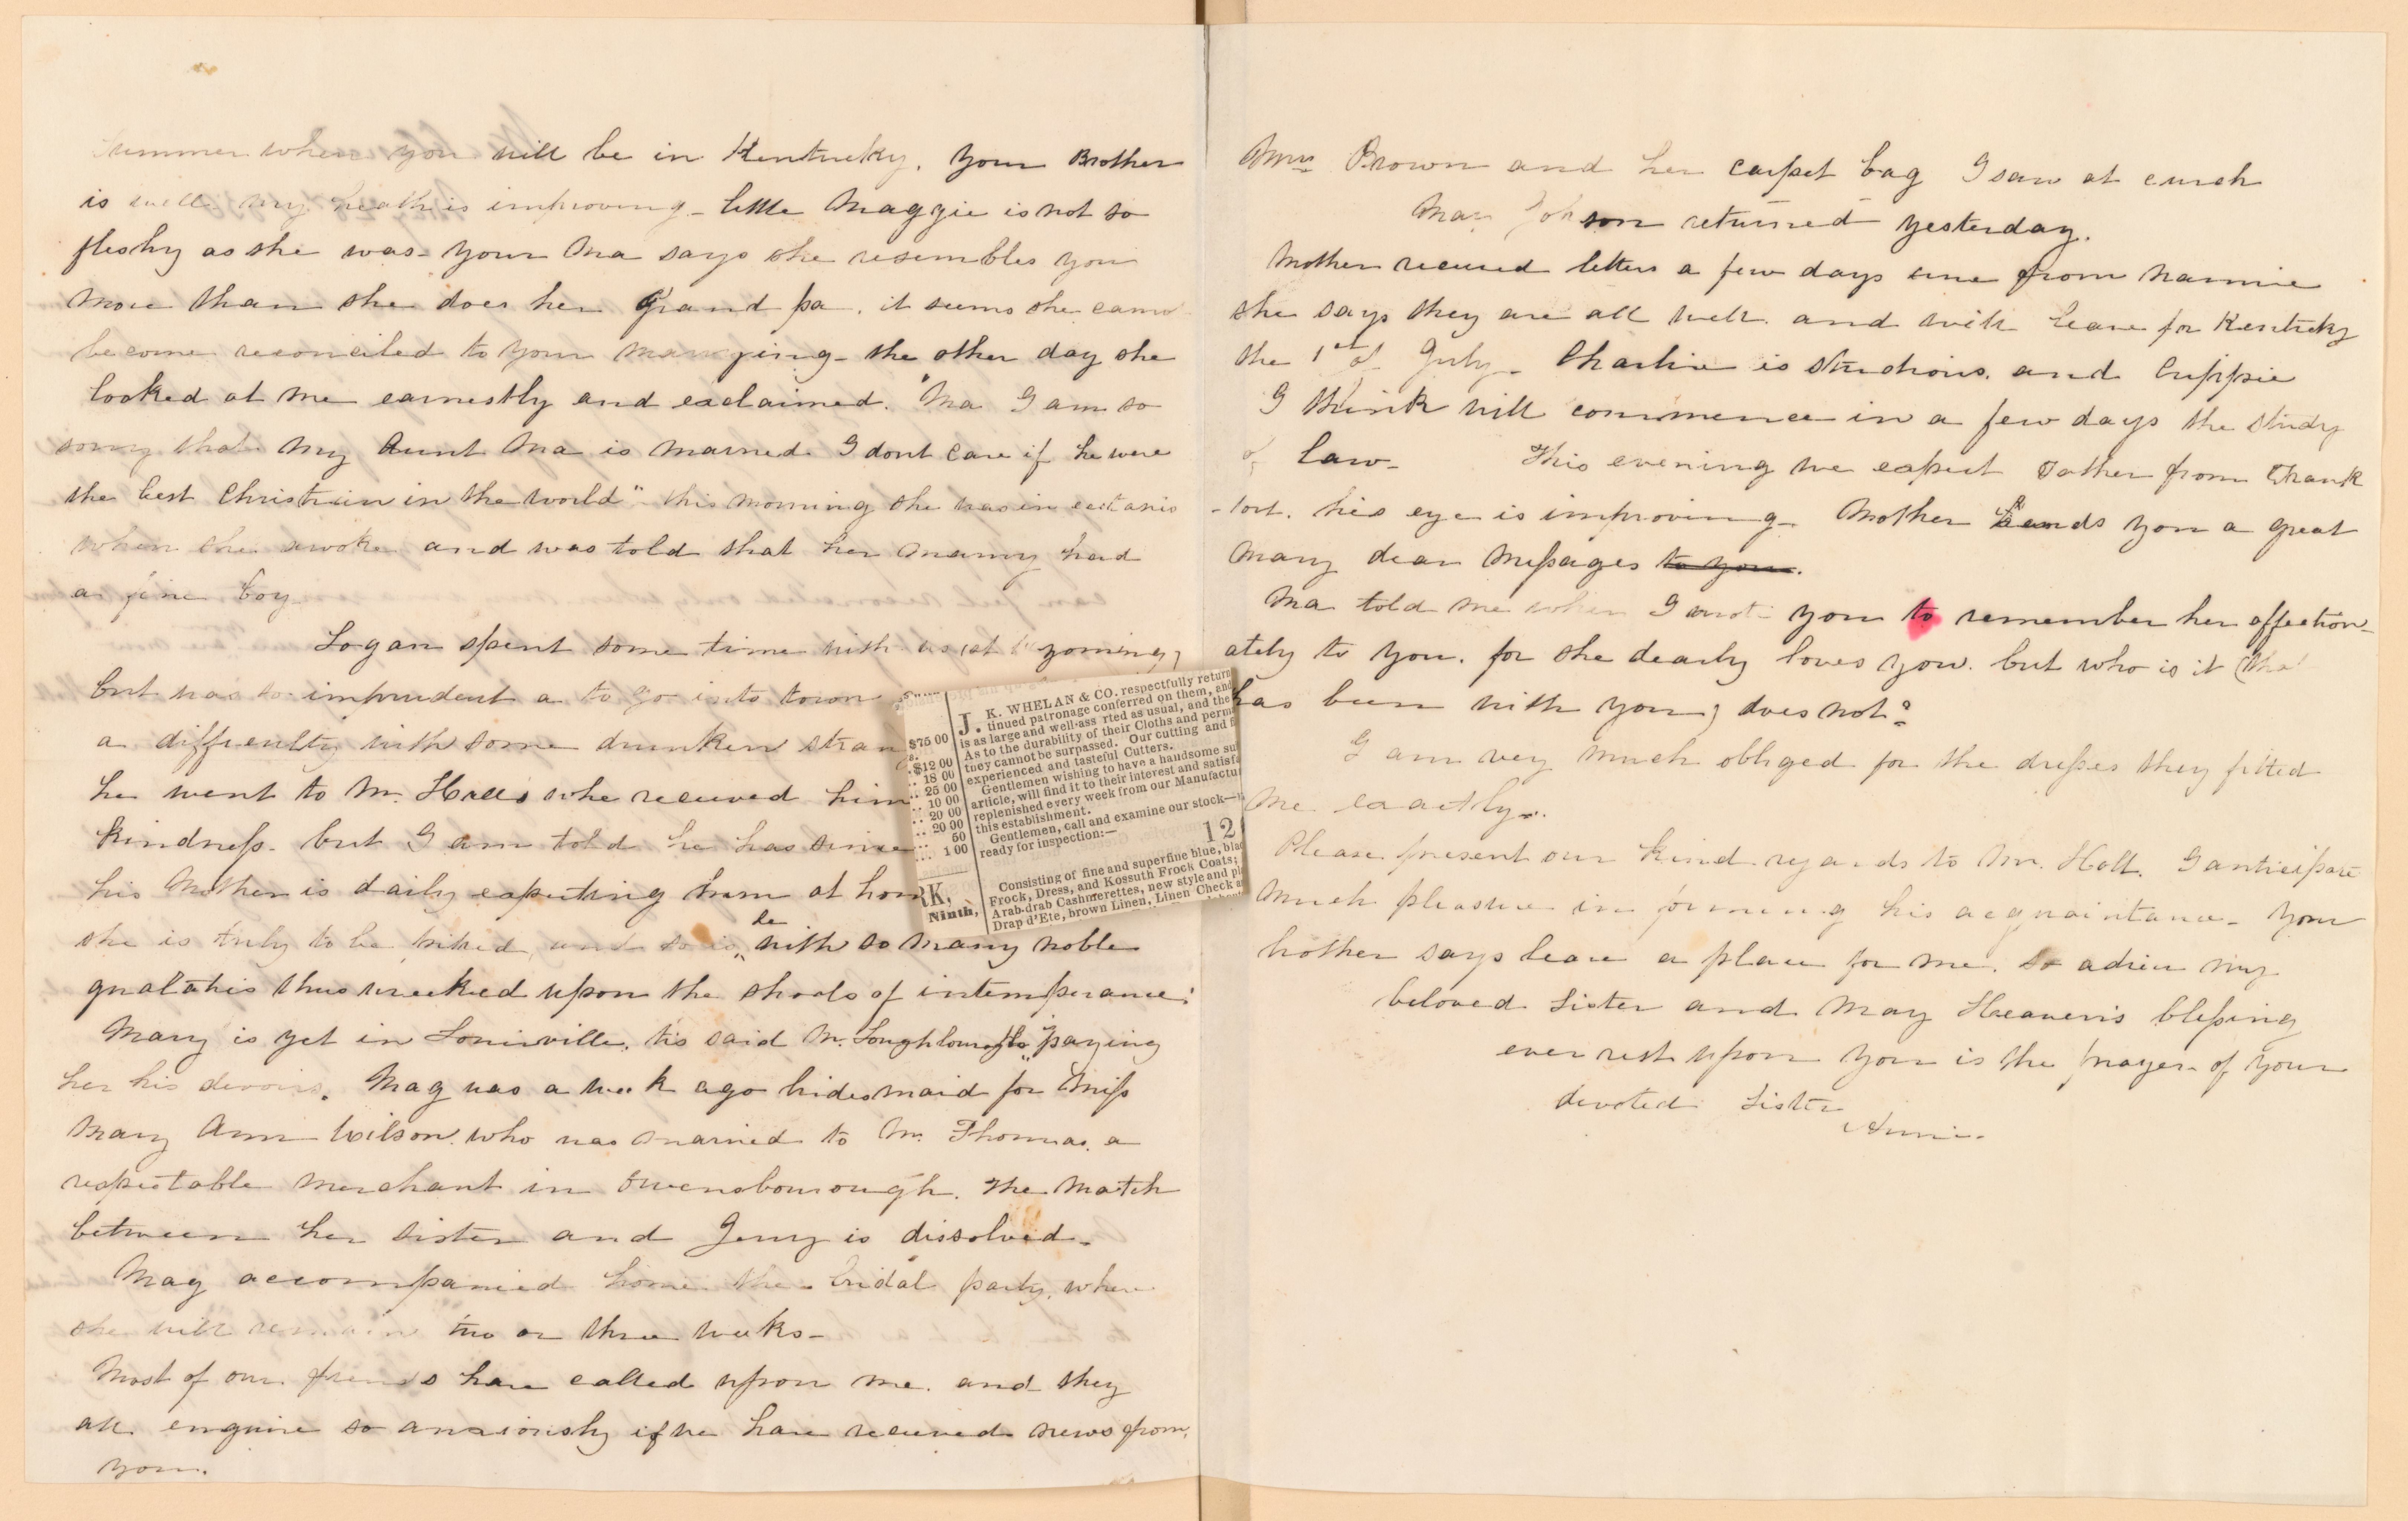 summer when you will be in Kentucky. Your Brother
is well my health is improving - little Maggie is not so
fleshy as she was - your Ma says she resembles you
more than she does her Grand pa. it seems she cannot
become reconciled to your marrying - the other day she
looked at me earnestly and exclaimed. "Ma I am so
sorry that my Aunt Ma is married I dont care if he were
the best Christian in the world" this morning she was in
when she awoke and was told that her mamy had
a fine boy
Logan spent some time with us at Wyoming,
but was so imprudent a to go into town
a difficulty with some drunken stran
he went to Mr. Halls who received him
kindness. but I am told he has since
his Mother is daily expecting him at hom
she is truly to be pitied, and so is he with so many noble
qualaties thus wrecked upon the shoals of intemperance.
Mary is yet in Louisville. tis said Mr. is paying
her his devoirs. Mag was a week ago bridesmaid for Miss
Mary Ann Wilson who was married to Mr. Thomas. a
respectable merchant in Owensborough. The match
between her sister and Jerry is dissolved.
Mag accompanied home the bridal party, where
she will remain two or three weeks -
Most of our friends have called upon me. and they
all enquire so anxiously if we have received news from
you.
$75 00
s.
.$12 00
.. 18 00
.. 25 00
.. 10 00
.. 20 00
.. 20 00
.. 50
... 1 00
RK,
Ninth,
J. K. WHELAN & CO. respectfully return
tinued patronage conferred on them, and
is as large and well-ass rted as usual, and the
As to the durability of their Cloths and perm
tuey cannot be surpassed. Our cutting and f
experienced and tasteful Cutters.
Gentlemen wishing to have a handsome su
article, will find it to their interest and satisfa
replenished every week from our Manufactu
this establishment.
Gentlemen, call and examine our stock—
ready for inspection:—
12
Consisting of fine and superfine blue, blac
Frock, Dress, and Kossuth Frock Coats;
Arab-drab Cashmerettes, new style and pl
Drap d'Ete, brown Linen, Linen Check a
Mrs Brown and her carpet bag I saw at curch
Mary Johnson returned yesterday.
Mother received letters a few days sine from Nannie
she says they are all well. and will leave for Kentucky
the 1st of July - Charlie is studious. and Cuppie
I think will commence in a few days the study
of law - This evening we expect Father from Frank
-fort. his eye is improving - Mother sends you a great
many dear messages to you.
Ma told me when I wrote you to remember her affection-
ately to you. for she dearly loves you. but who is it that
has been with you, does not?
I am very much obliged for the dresses they fitted
me exactly -
Please present our kind regards to Mr. Holt. I anticipate
much pleasure in forming his acquaintance - Your
brother says leave a place for me. so adieu my
beloved sister and may Heaven's blessing
ever rest upon you is the prayer of your
devoted Sister
Annie.